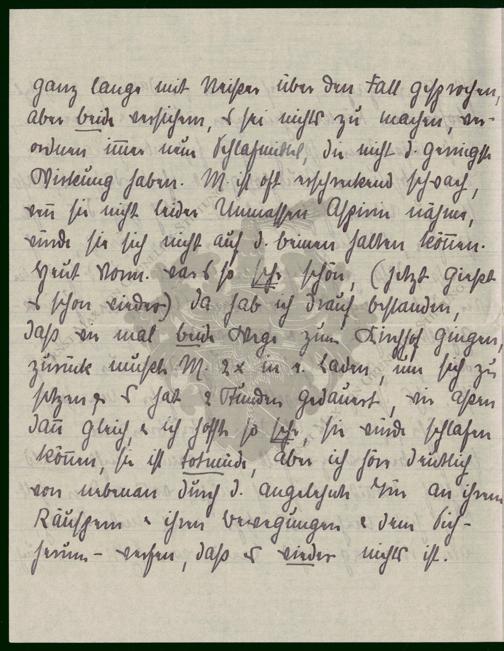 ganz lange mit Neißer über den Fall gesprochen,
aber beide versichern, es sei nichts zu machen, ver-
ordnen immer neue Schlafmittel, die nicht d. geringste
Wirkung haben. M. ist oft erschreckend schwach,
wenn sie nicht leider Unmassen Aspirin nähme,
würde sie sich nicht auf d. beinen halten können.
Heut Vorm. war es so sehr schön, (jetzt gießt
es schon wieder) da hab ich drauf bestanden,
daß wir mal beide Wege zum Kirchhof gingen,
zurück mußte M. 2x in e. Laden, um sich zu
setzen, es hat 2 Stunden gedauert, wir aßen
dann gleich, u ich hoffte so sehr, sie würde schlafen
können, sie ist totmüde, aber ich höre deutlich
von nebenan durch d. angelehnte Tür an ihrem
Räuspern u ihren bewegungen u dem Sich-
herum-werfen, daß es wieder nichts ist.